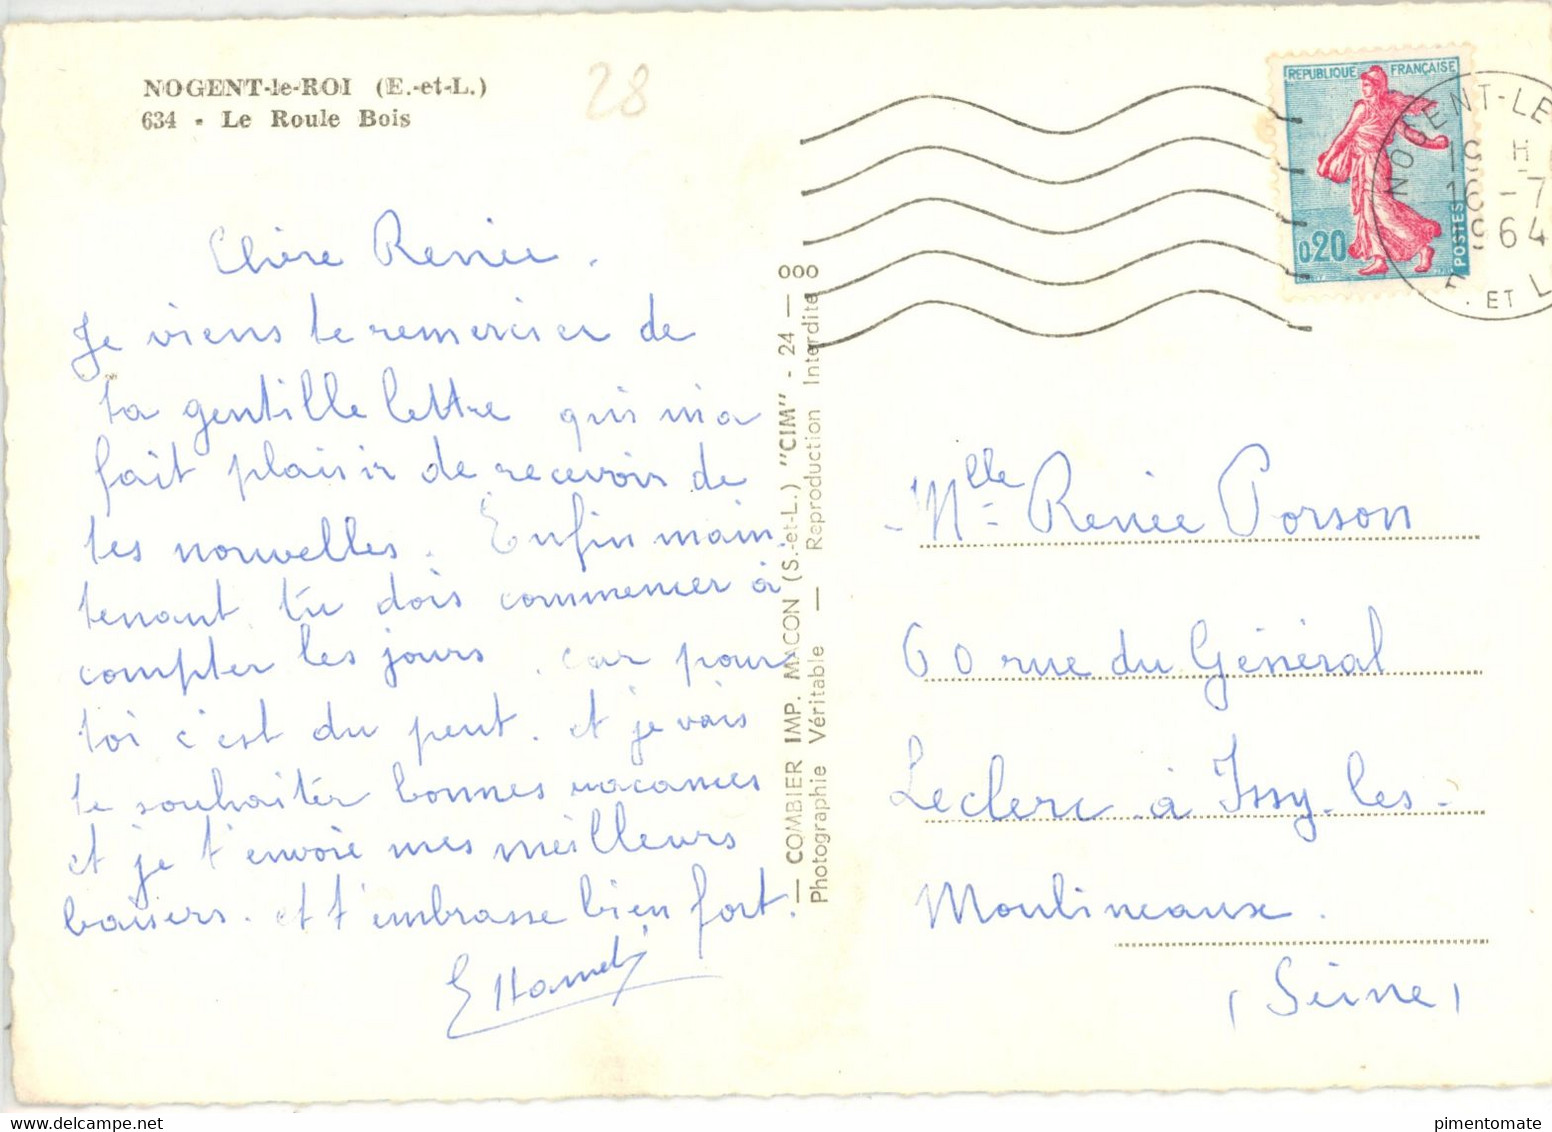 NOGENT-le-ROI (E.-et-L.)
634 - Le Roule Bois
28
Chère Renée.
Je viens te remercier de
ta gentille lettre qui m'a
fait plaisir de recevoir de
tes nouvelles. Enfin main-
tenant tu dois commencer à
compter les jours. car pour
toi c'est du peut. et je vais
te souhaiter bonnes vacances
et je t'envoie mes meilleurs
baisers. et t'embrasse bien fort.
— COMBIER IMP. MACON (S.-et-L.) "CIM" - 24 — 000
Photographie Véritable — Reproduction Interdite
REPUBLIQUE FRANÇAISE
0,20
POSTES
NOGENT-LE
19 H
16 - 7
1964
E. ET L
Mlle Renée Porson
60 rue du Général
Leclerc à Issy-les-
Moulineaux.
(Seine)
pimentomate
www.delcampe.net